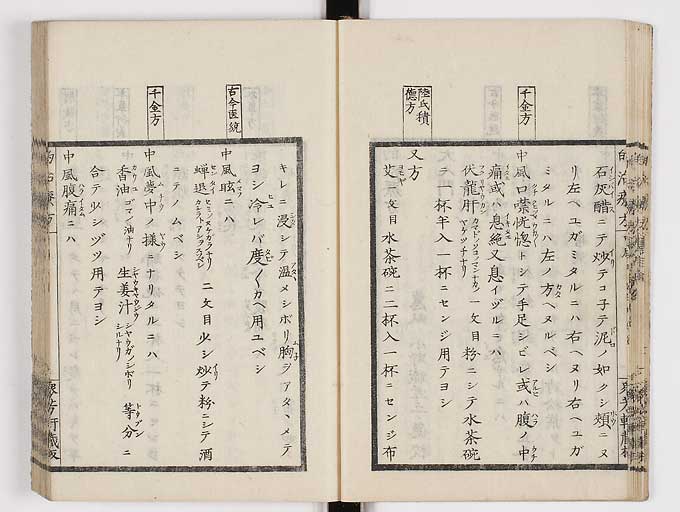 石灰醋ニテ炒テコ子テ泥ノ如クシ頬ニヌ
リ左ヘユガミタルニハ右ヘヌリ右ヘユガ
ミタルニハ左ノ方ヘヌルベシ
千金方
中風口噤恍惚トシテ手足シビレ或ハ腹ノ中
痛或ハ息絶又息イヅルニハ
伏龍肝 カマドノソコノマンナカノヤケツチナリ 一文目粉ニシテ水茶碗
ニテ一杯半入一杯ニセンジ用テヨシ
陸氏積徳方
又方
艾 二文目水茶碗ニ二杯入一杯ニセンジ布
キレニ浸シテ温メシボリ胸ヲアタヽメテ
ヨシ冷レバ度〱カヘ用ユベシ
古今医統
中風眩ニハ
蝉退 二文目少シ炒テ粉ニシテ酒
ニテノムベシ
千金方
中風夢中ノ様ニナリタルニハ
香油 ゴマノ油ナリ 生姜汁 シヤウガノシボリシルナリ 等分ニ
合テ少シヅツ用テヨシ
中風腹痛ニハ